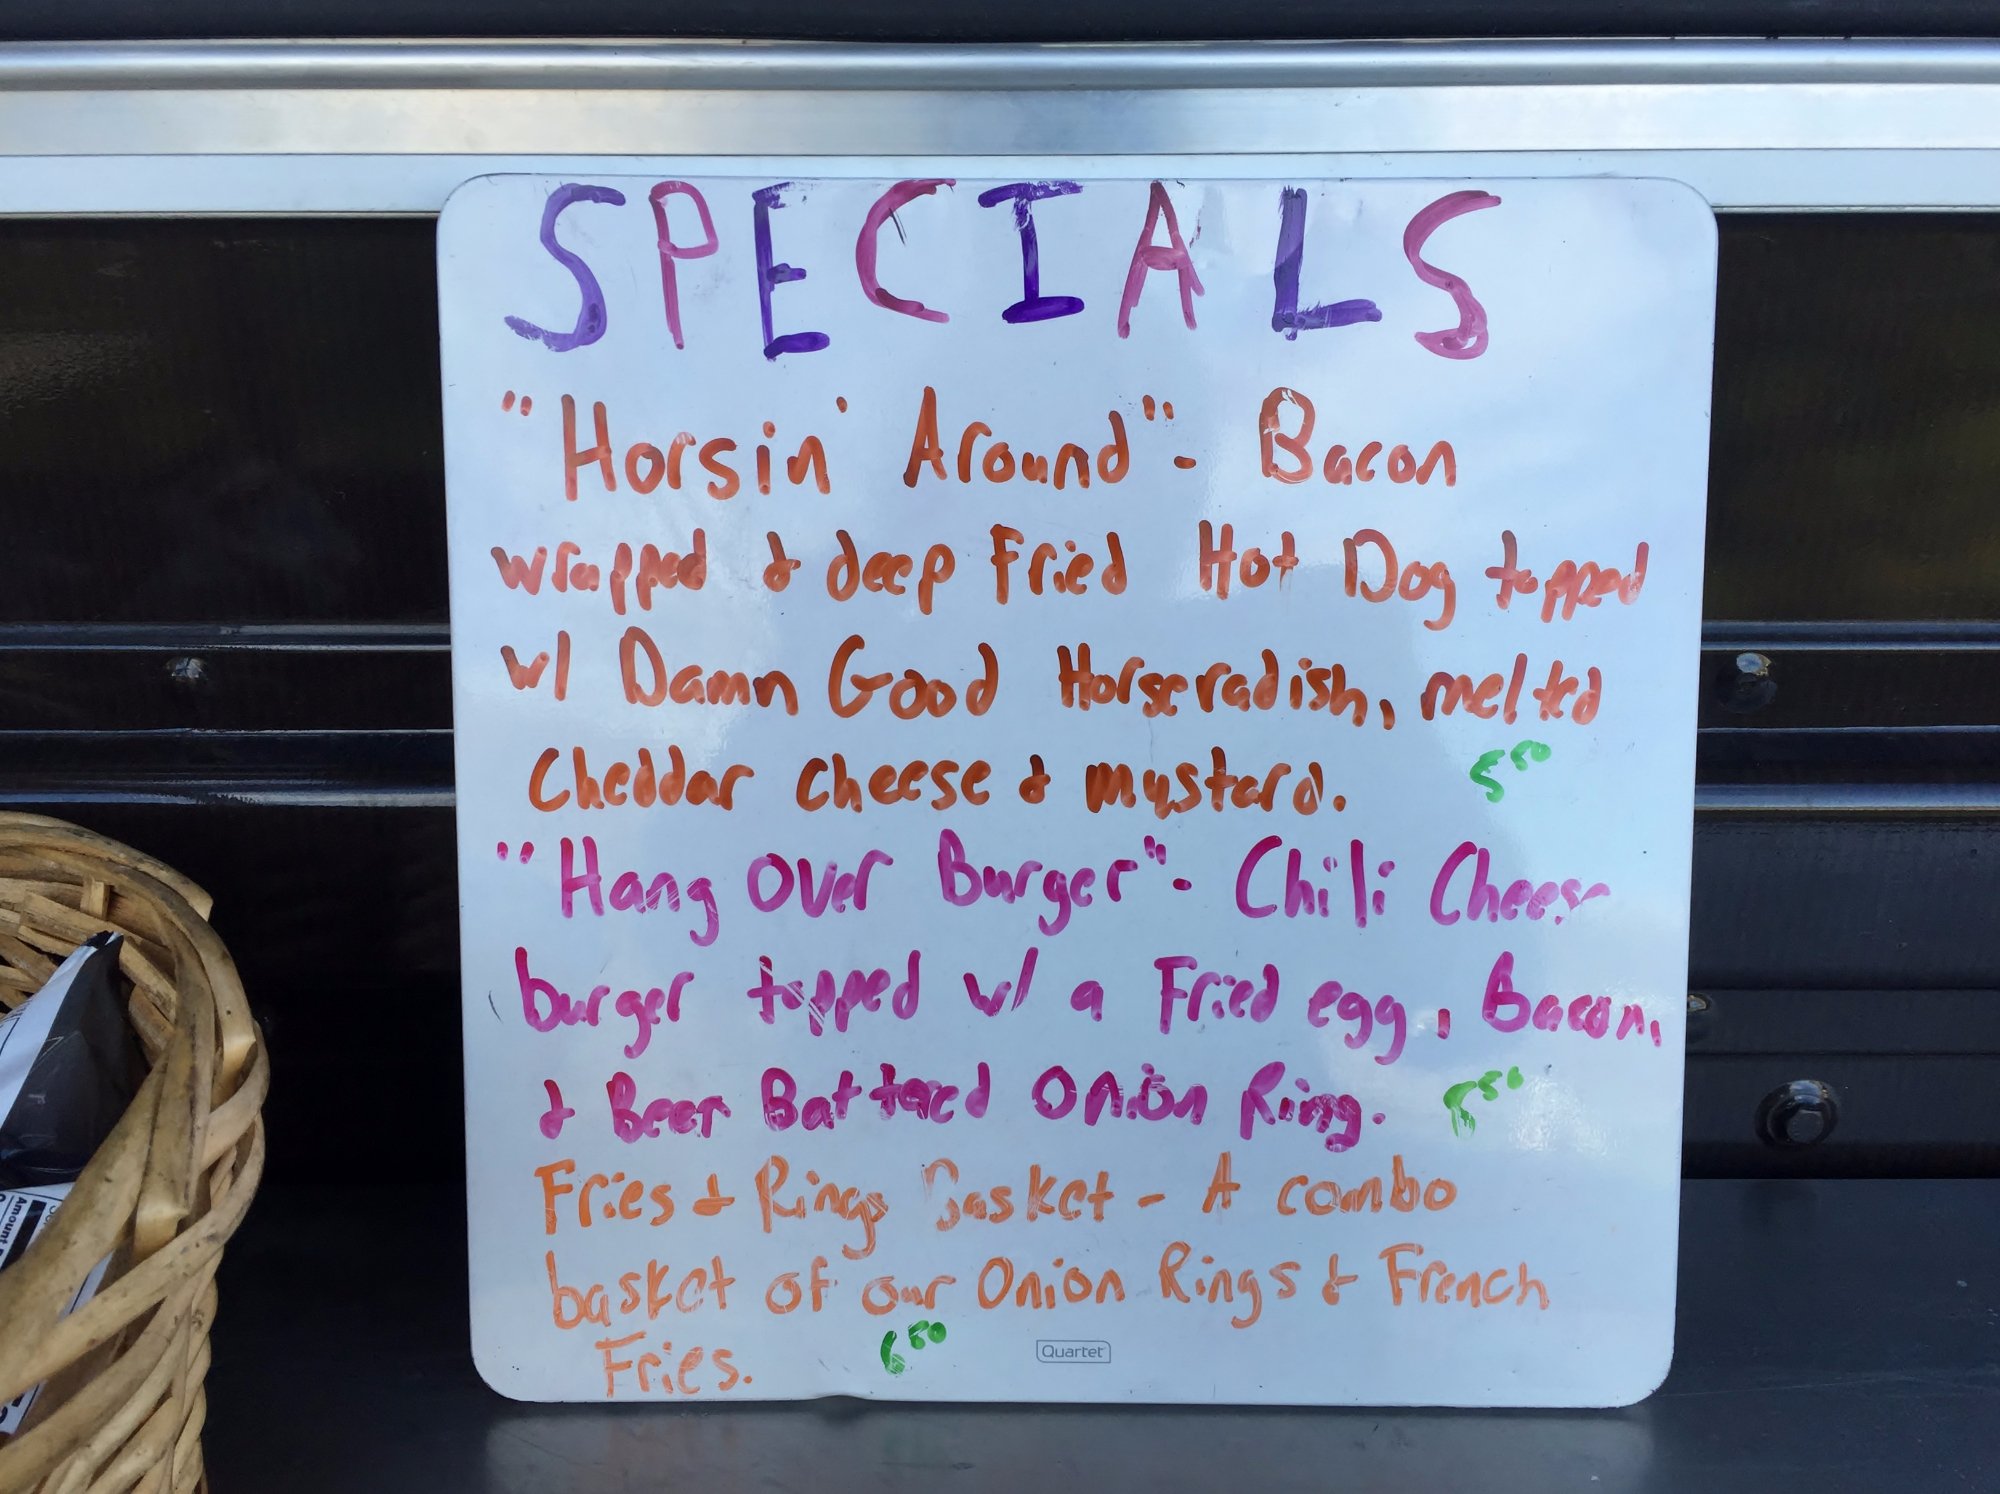 SPECIALS
"Horsin' Around" - Bacon
wrapped & deep Fried Hot Dog topped
w/ Damn Good Horseradish, melted
Cheddar cheese & mustard. 5 50
"Hang Over Burger" - Chili Cheese
burger topped w/ a Fried egg, Bacon,
& Beer Battered Onion Ring. 50
Fries & Rings Basket - A combo
basket of our Onion Rings & French
Fries. 6 50
Quartet
Amount